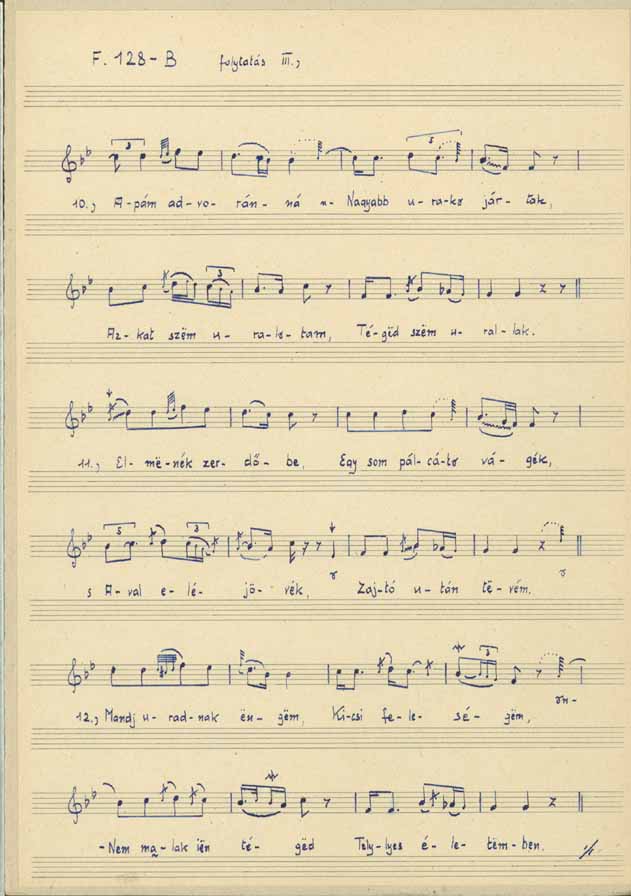 F. 128 - B folytatás III.,
10., A-pám ad-vo-rán-ná n- Nagyabb u-ra-kə jár-tak,
Az-kat szëm u-ra-lə-tam, Té-gëd szëm u-ral-lak.
11., El-më-nék zer-dő-be, Egy som pál-cá-tə vá-gék,
s A-val e-lé-jö-vék, Zaj-tó u-tán të-vém.
12., Mandj u-rad-nak ën-gëm, Ki-csi fe-le-sé-gëm, ən-
-Nem ma-lak iën té-gëd Tely-lyes é-le-tëm-ben.